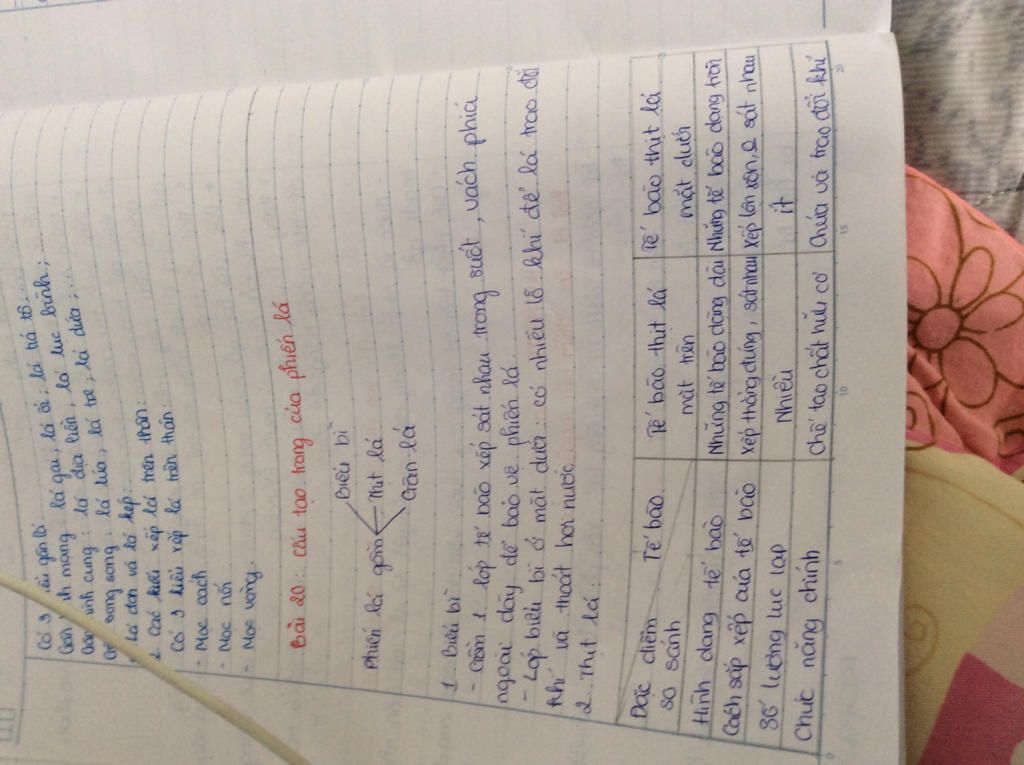 Có 3 kiểu gân lá
Gân hình mạng: lá gai; lá ổi; lá tía tô;...
Gân hình cung: lá địa liền, lá lục bình;...
Gân song song: lá lúa, lá tre, lá dừa;...
Lá đơn và lá kép:
2. Các kiểu xếp lá trên thân:
Có 3 kiểu xếp lá trên thân:
- Mọc cách
- Mọc
- Mọc vòng.
Bài 20: Cấu tạo trong của phiến lá
Phiến lá gồm
Biểu bì
Thịt lá
Gân lá
1. Biểu bì
- Gồm 1 lớp tế bào xếp sát nhau trong suốt, vách phía
ngoài dày để bảo vệ phiến lá.
- Lớp biểu bì ở mặt dưới: có nhiều lỗ khí để lá trao đổi
khí và thoát hơi nước.
2. Thịt lá:
Đặc điểm so sánh Tế bào Tế bào thịt lá mặt trên Tế bào thịt lá mặt dưới
Hình dạng tế bào Những tế bào dạng dài Những tế bào dạng tròn
Cách sắp xếp của tế bào xếp thẳng đứng, sát nhau xếp lộn xộn, sát nhau
Số lượng lục lạp Nhiều ít
Chức năng chính Chế tạo chất hữu cơ Chứa và trao đổi khí